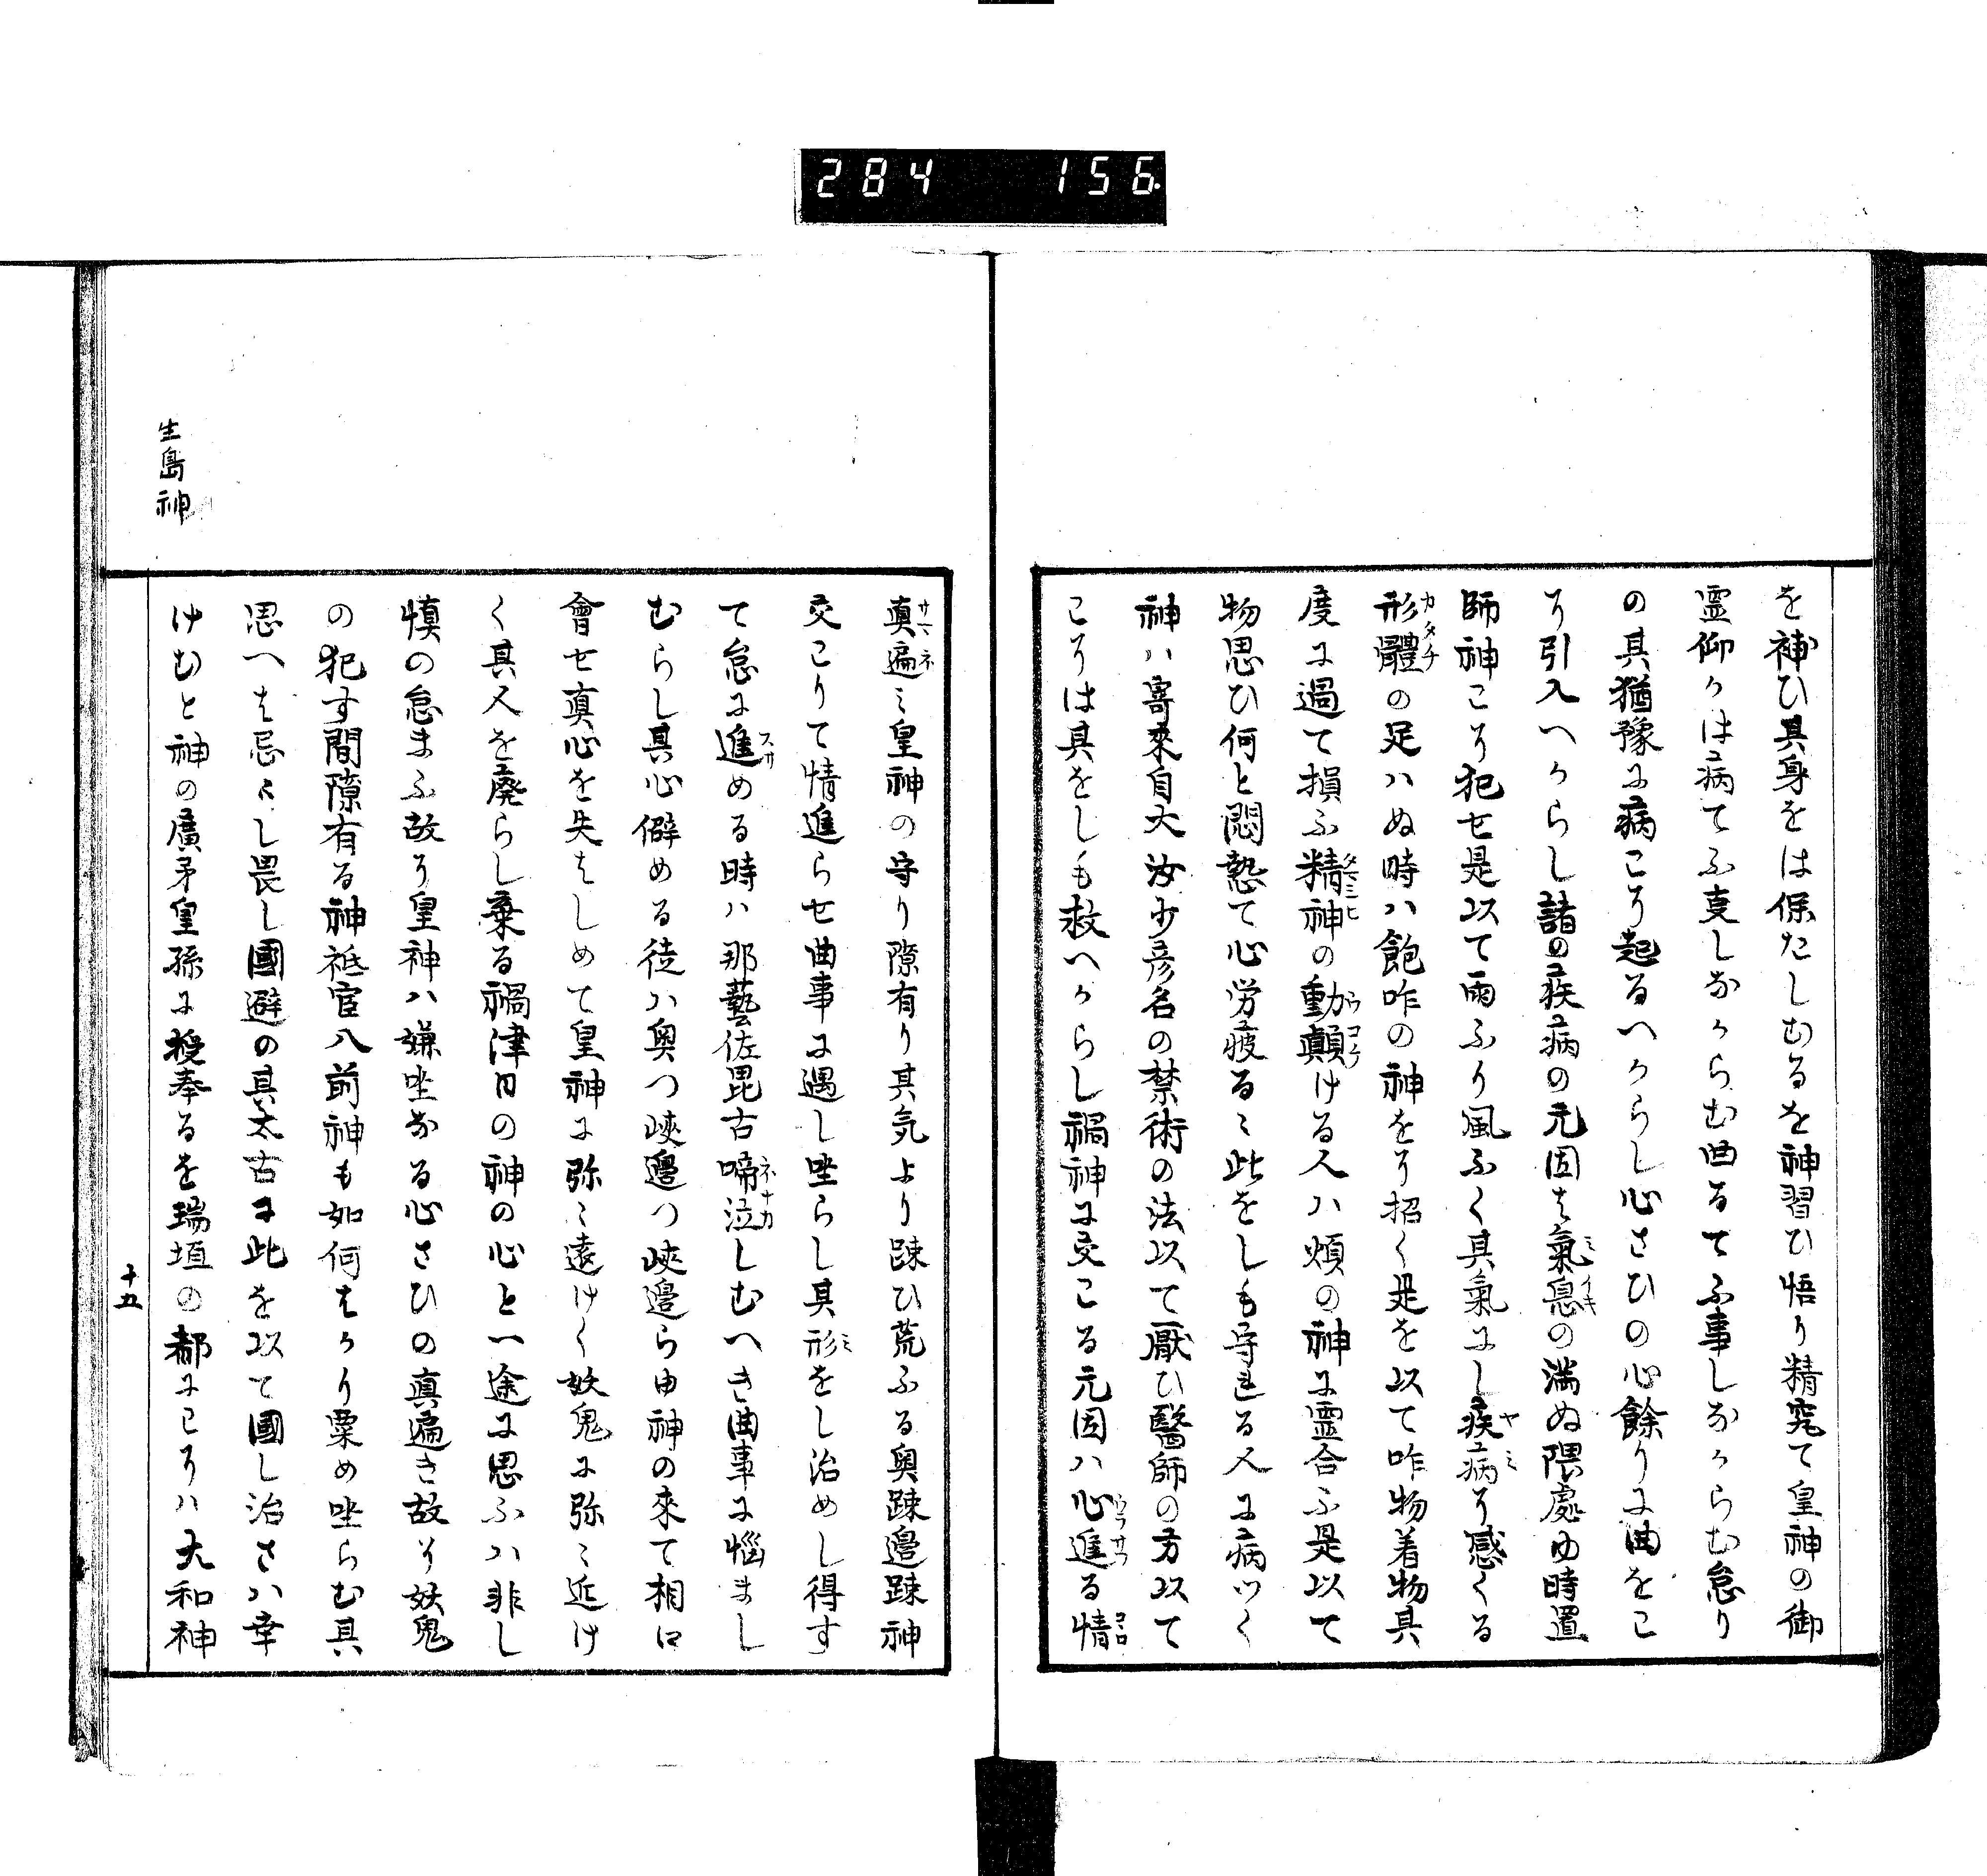 284 156
を補ひ其身をは保たしむるを神習ひ悟り精究て皇神の御
霊仰かは病てふ叓しなからむ曲るてふ事しなからむ怠り
の其猶豫に病こそ起るへからし心さひの心餘りに曲をこ
そ引入へからし諸の疾病の元因は氣息の満ぬ隈處ゆ時置
ミイキ
師神こそ犯せ是以て雨ふり風ふく其氣にし疾病そ感くる
ヤミ
形體の足ハぬ時ハ飽咋の神をそ招く是を以て咋物着物具
カタチ
度に過て損ふ精神の動顛ける人ハ煩の神に霊合ふ是以て
タマシヒ
物思ひ何と悶熱て心労疲るゝ此をしも守れる人に病つく
神ハ寄來自大汝少彦名の禁術の法以て厭ひ醫師の方以て
こそは其をしも救へからし禍神に交こる元因ハ心進る情
ウラサフ
コヽロ
真遍ミ皇神の守り隙有り其気より踈ひ荒ふる奥踈邉踈神
交こりて情進らせ曲事に遇し坐らし其形をし治めし得す
ミ
て怠に進める時ハ那藝佐毘古啼泣しむへき曲事に惱まし
スサ
ネナカ
むらし其心僻める徒ハ奥つ峽邉つ峽邉らゆ神の來て相口
會せ真心を失はしめて皇神に弥ミ遠けく妖鬼に弥ミ近け
く其人を廃らし棄る禍津日の神の心と一途に思ふハ非し
慎の怠まふ故そ皇神ハ嫌坐なる心さひの真遍き故そ妖鬼
の犯す間隙有る神祗官八前神も如何はかり棄め坐らむ具
思へは忌〻し畏し國避の其太古に此を以て國し治さハ幸
けむと神の廣矛皇孫に授奉るを瑞垣の都にこそハ大和神
生島神
十五